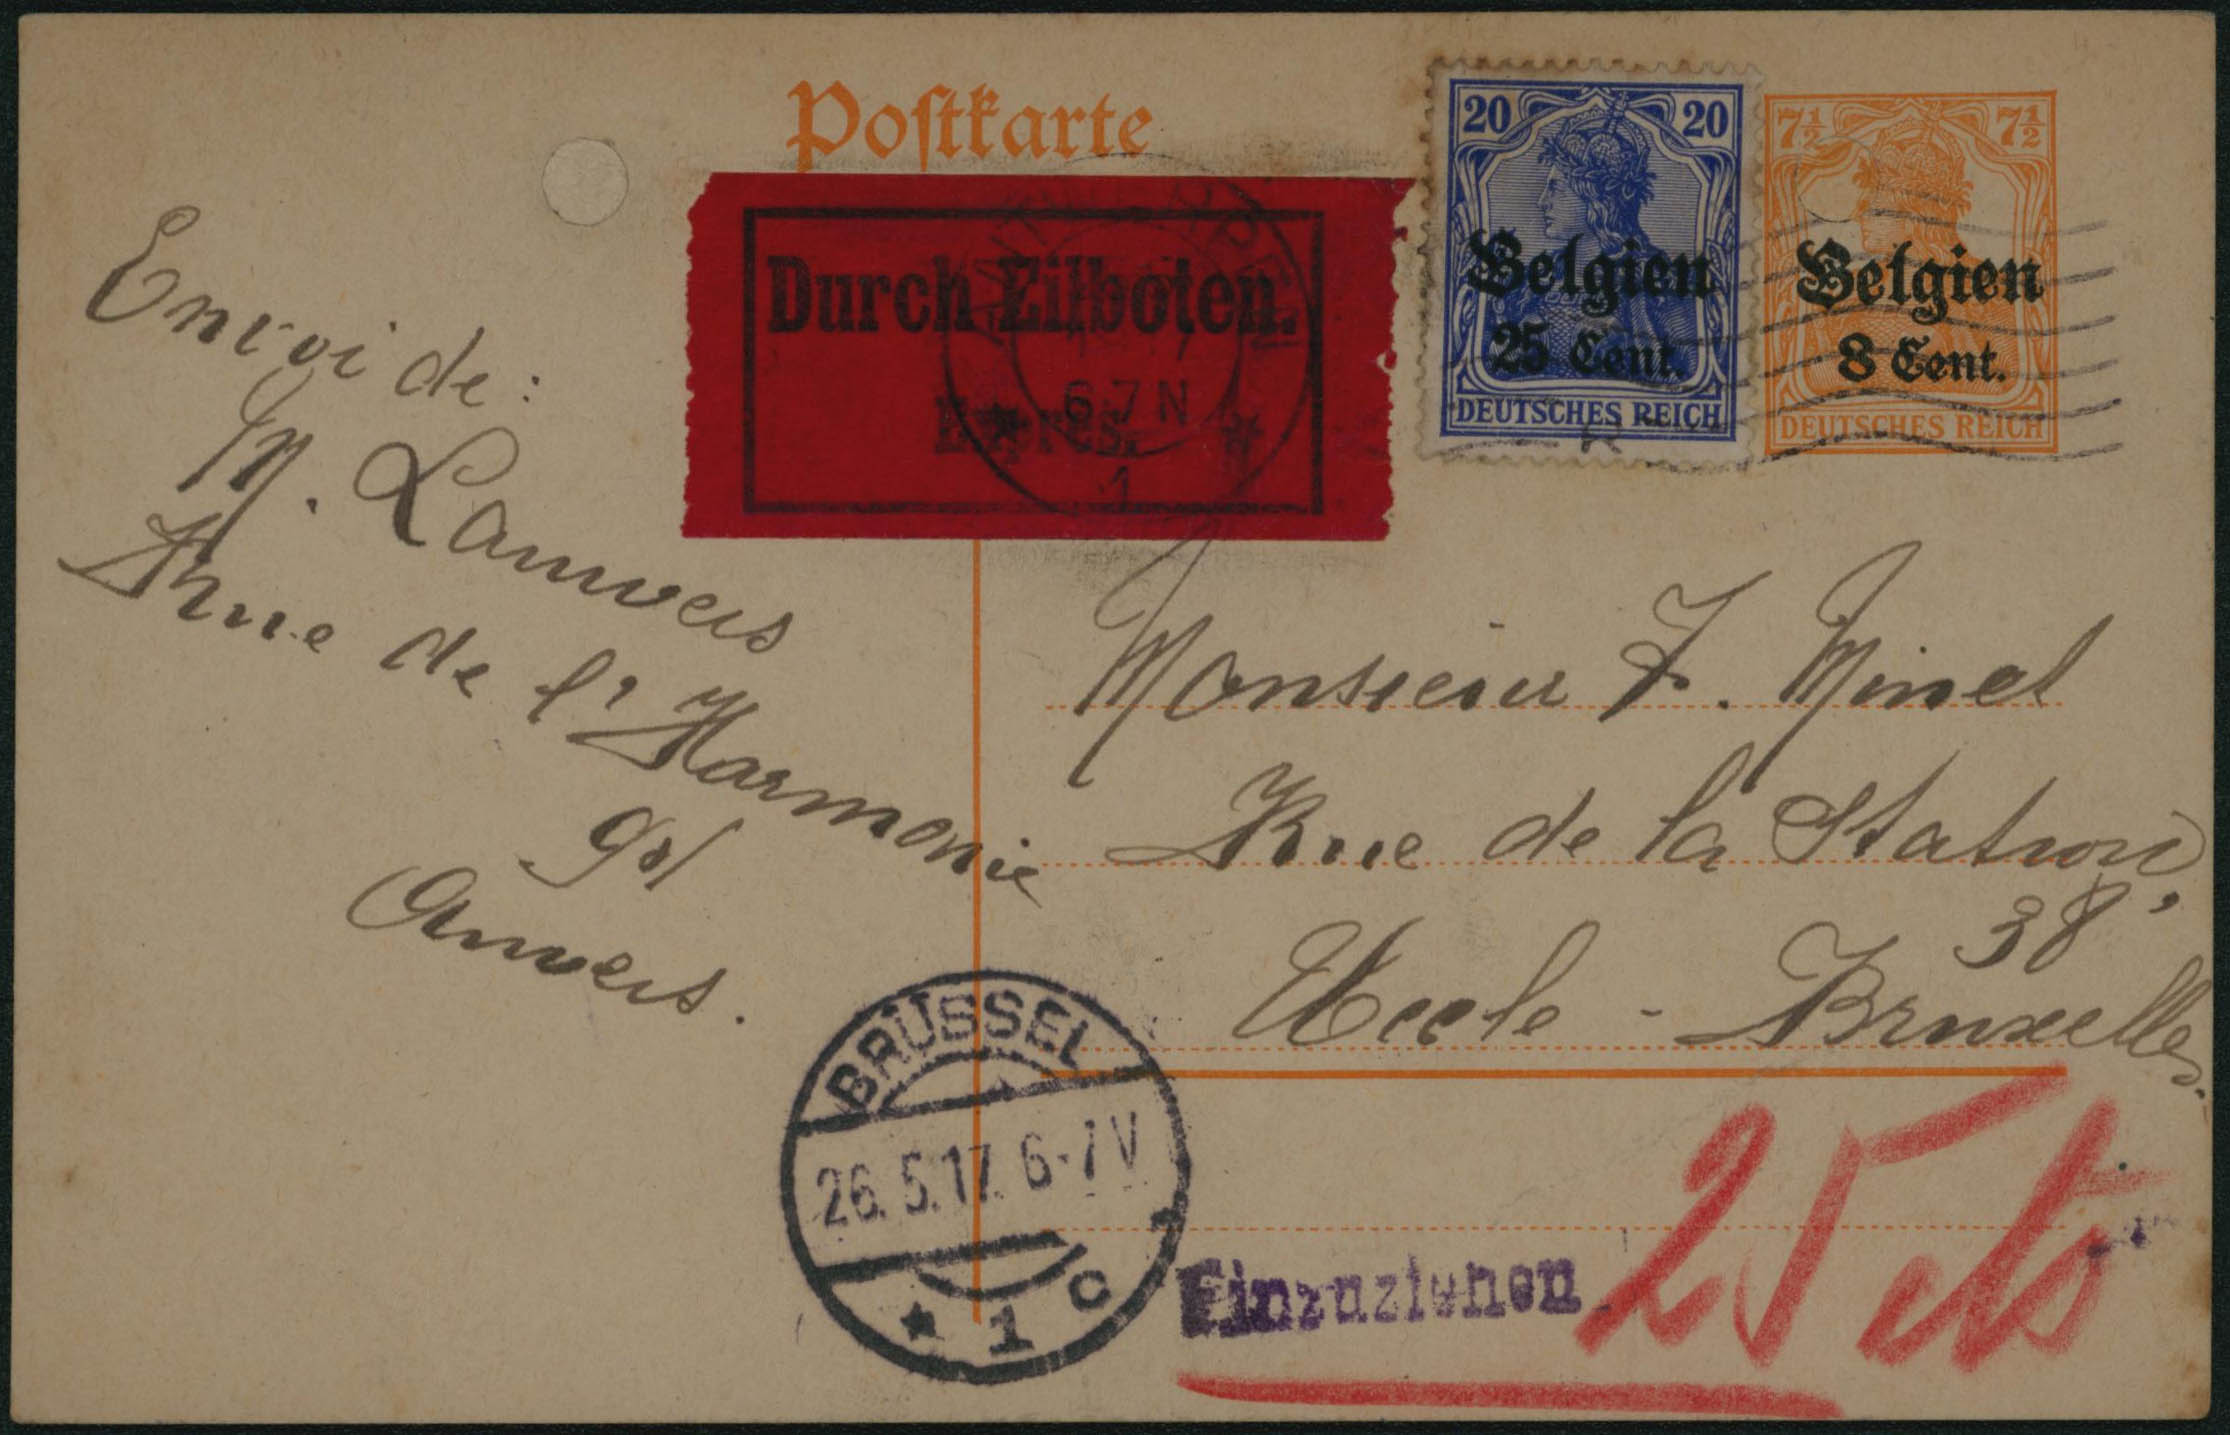 Postkarte
Durch Eilboten.
Exprès.
6-7 N
1
20 20
Belgien
25 Cent.
DEUTSCHES REICH
7½ 7½
Belgien
8 Cent.
DEUTSCHES REICH
Envoi de:
M. Lauwers
rue de l'Harmonie
Anvers.
Monsieur F. Minet
Rue de la Station,
38
Uccle - Bruxelles.
BRÜSSEL
26.5.17. 6-7 V
* 1 c
Einzuziehen
25 cts